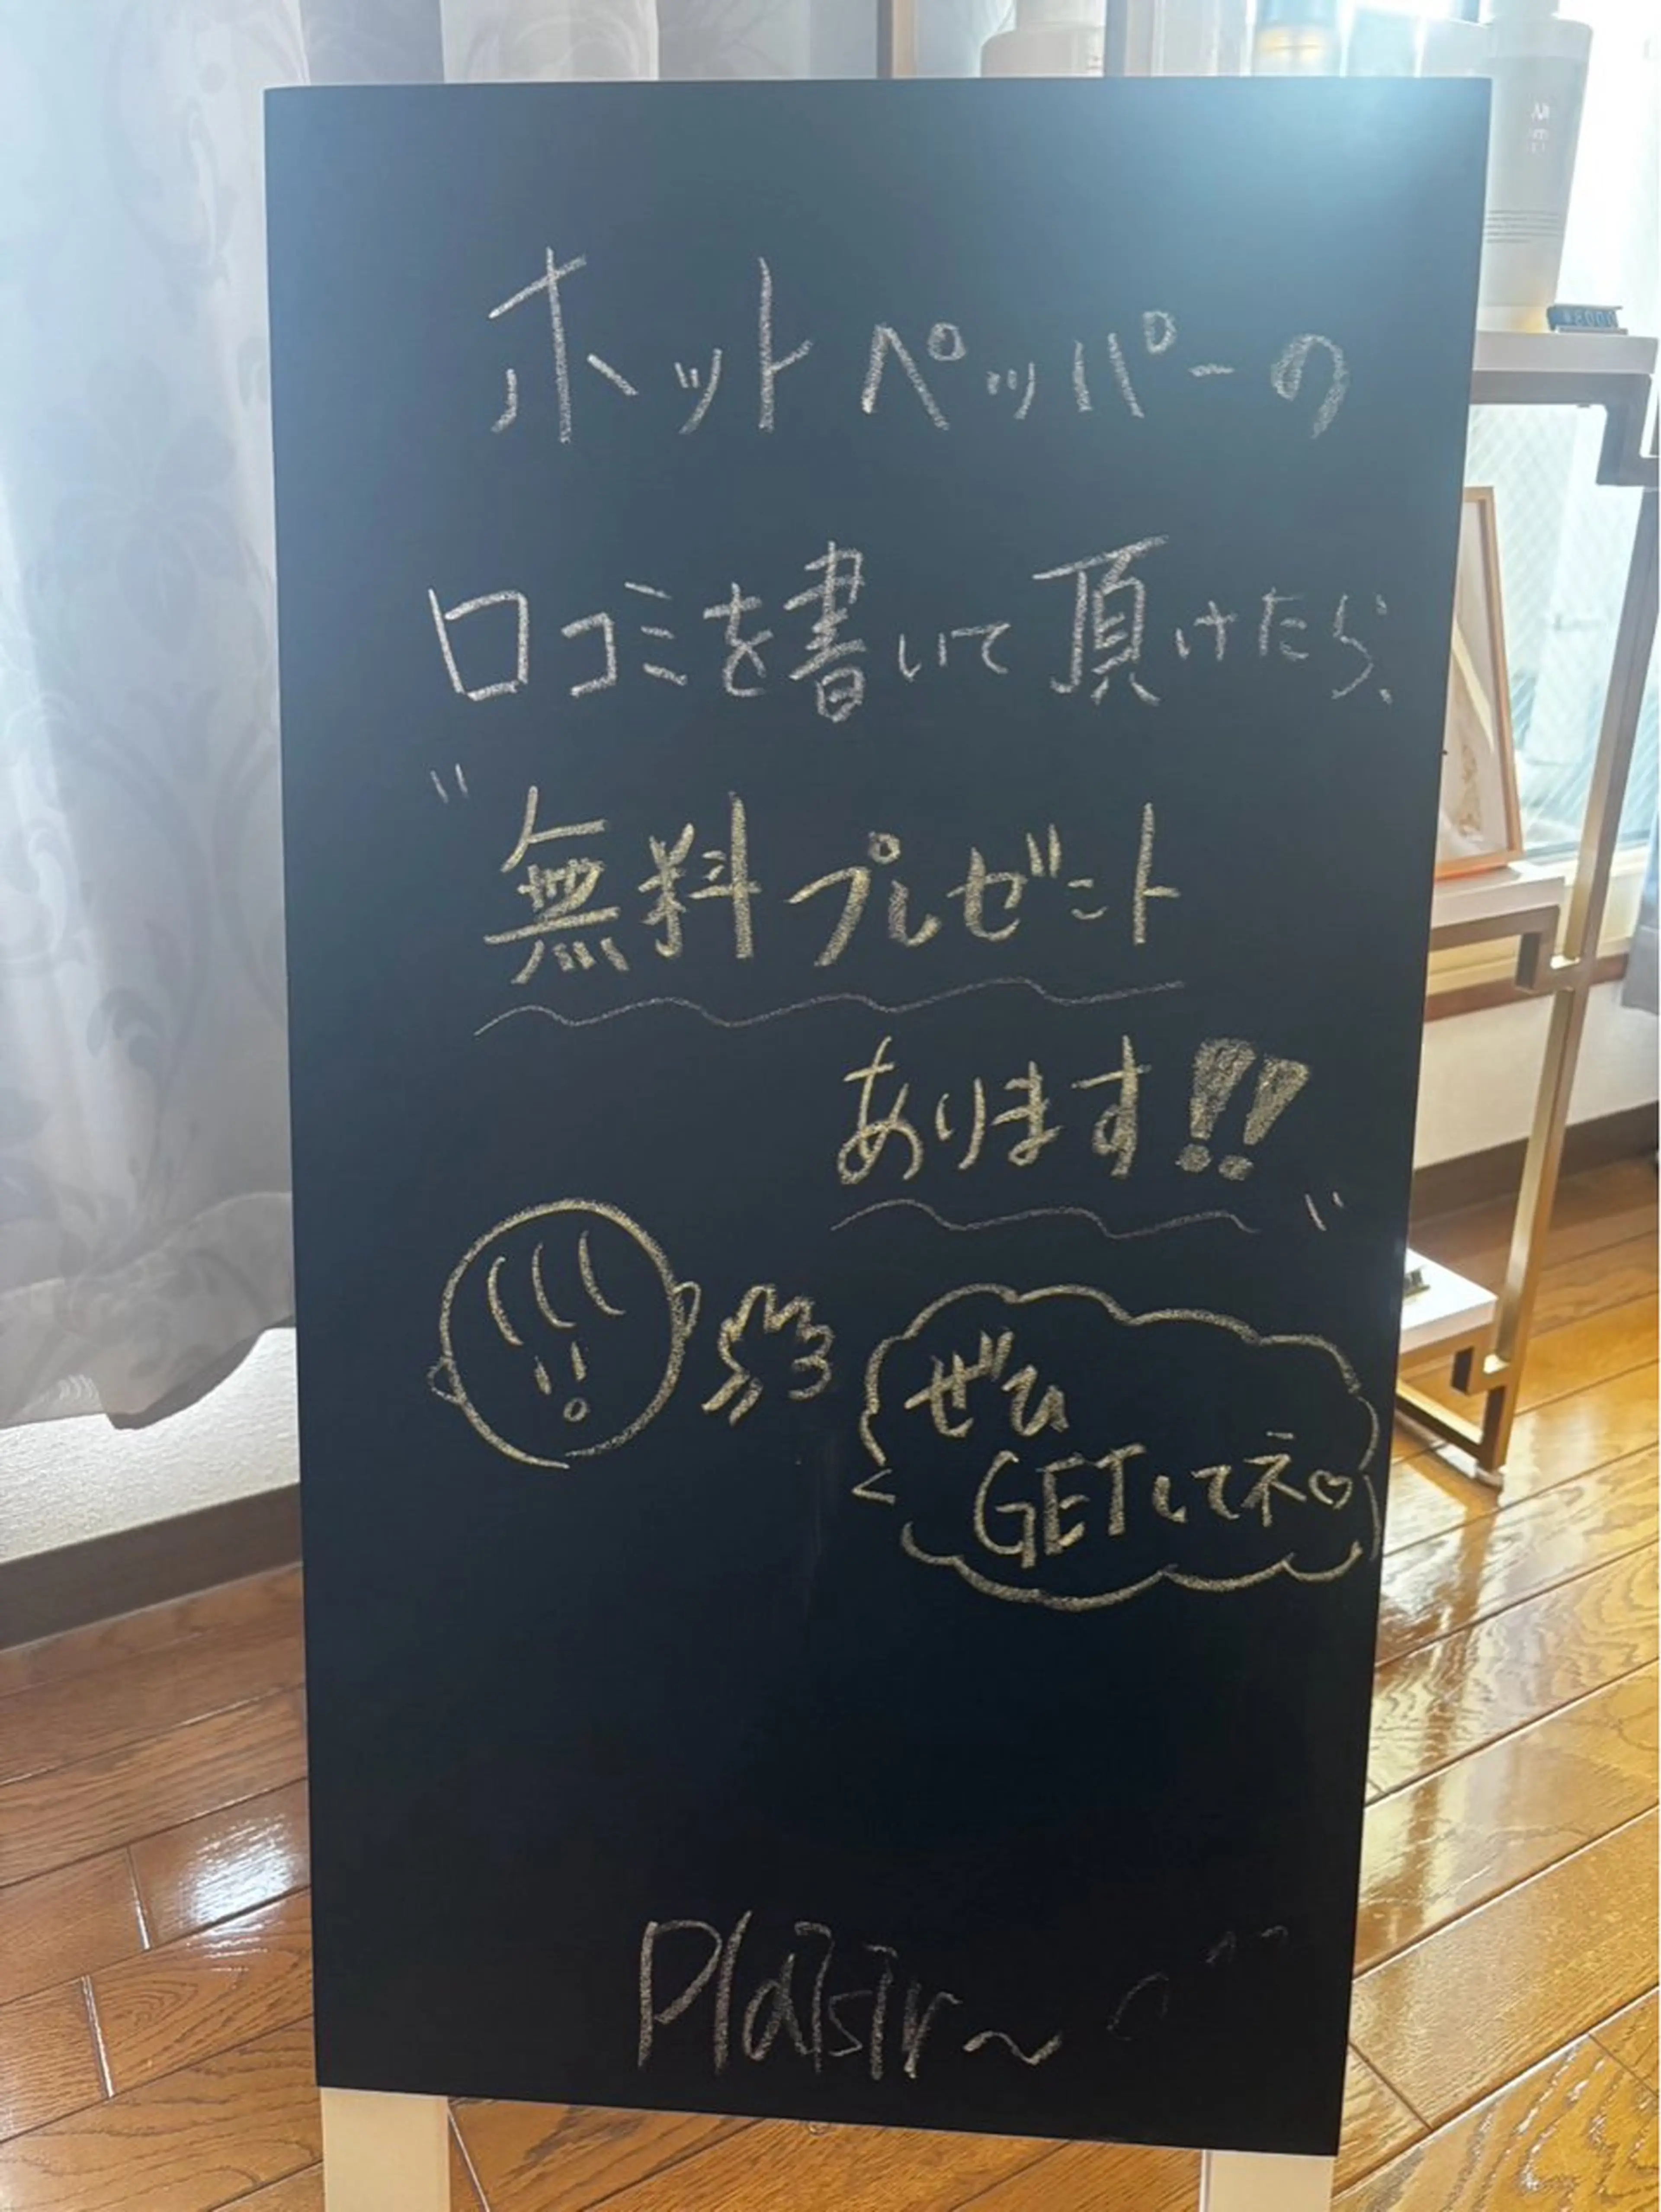 ホットペッパーの
口コミを書いて頂けたら、
"無料プレゼント
あります!!"
ぜひ
GETしてネ♡
Plaisir~